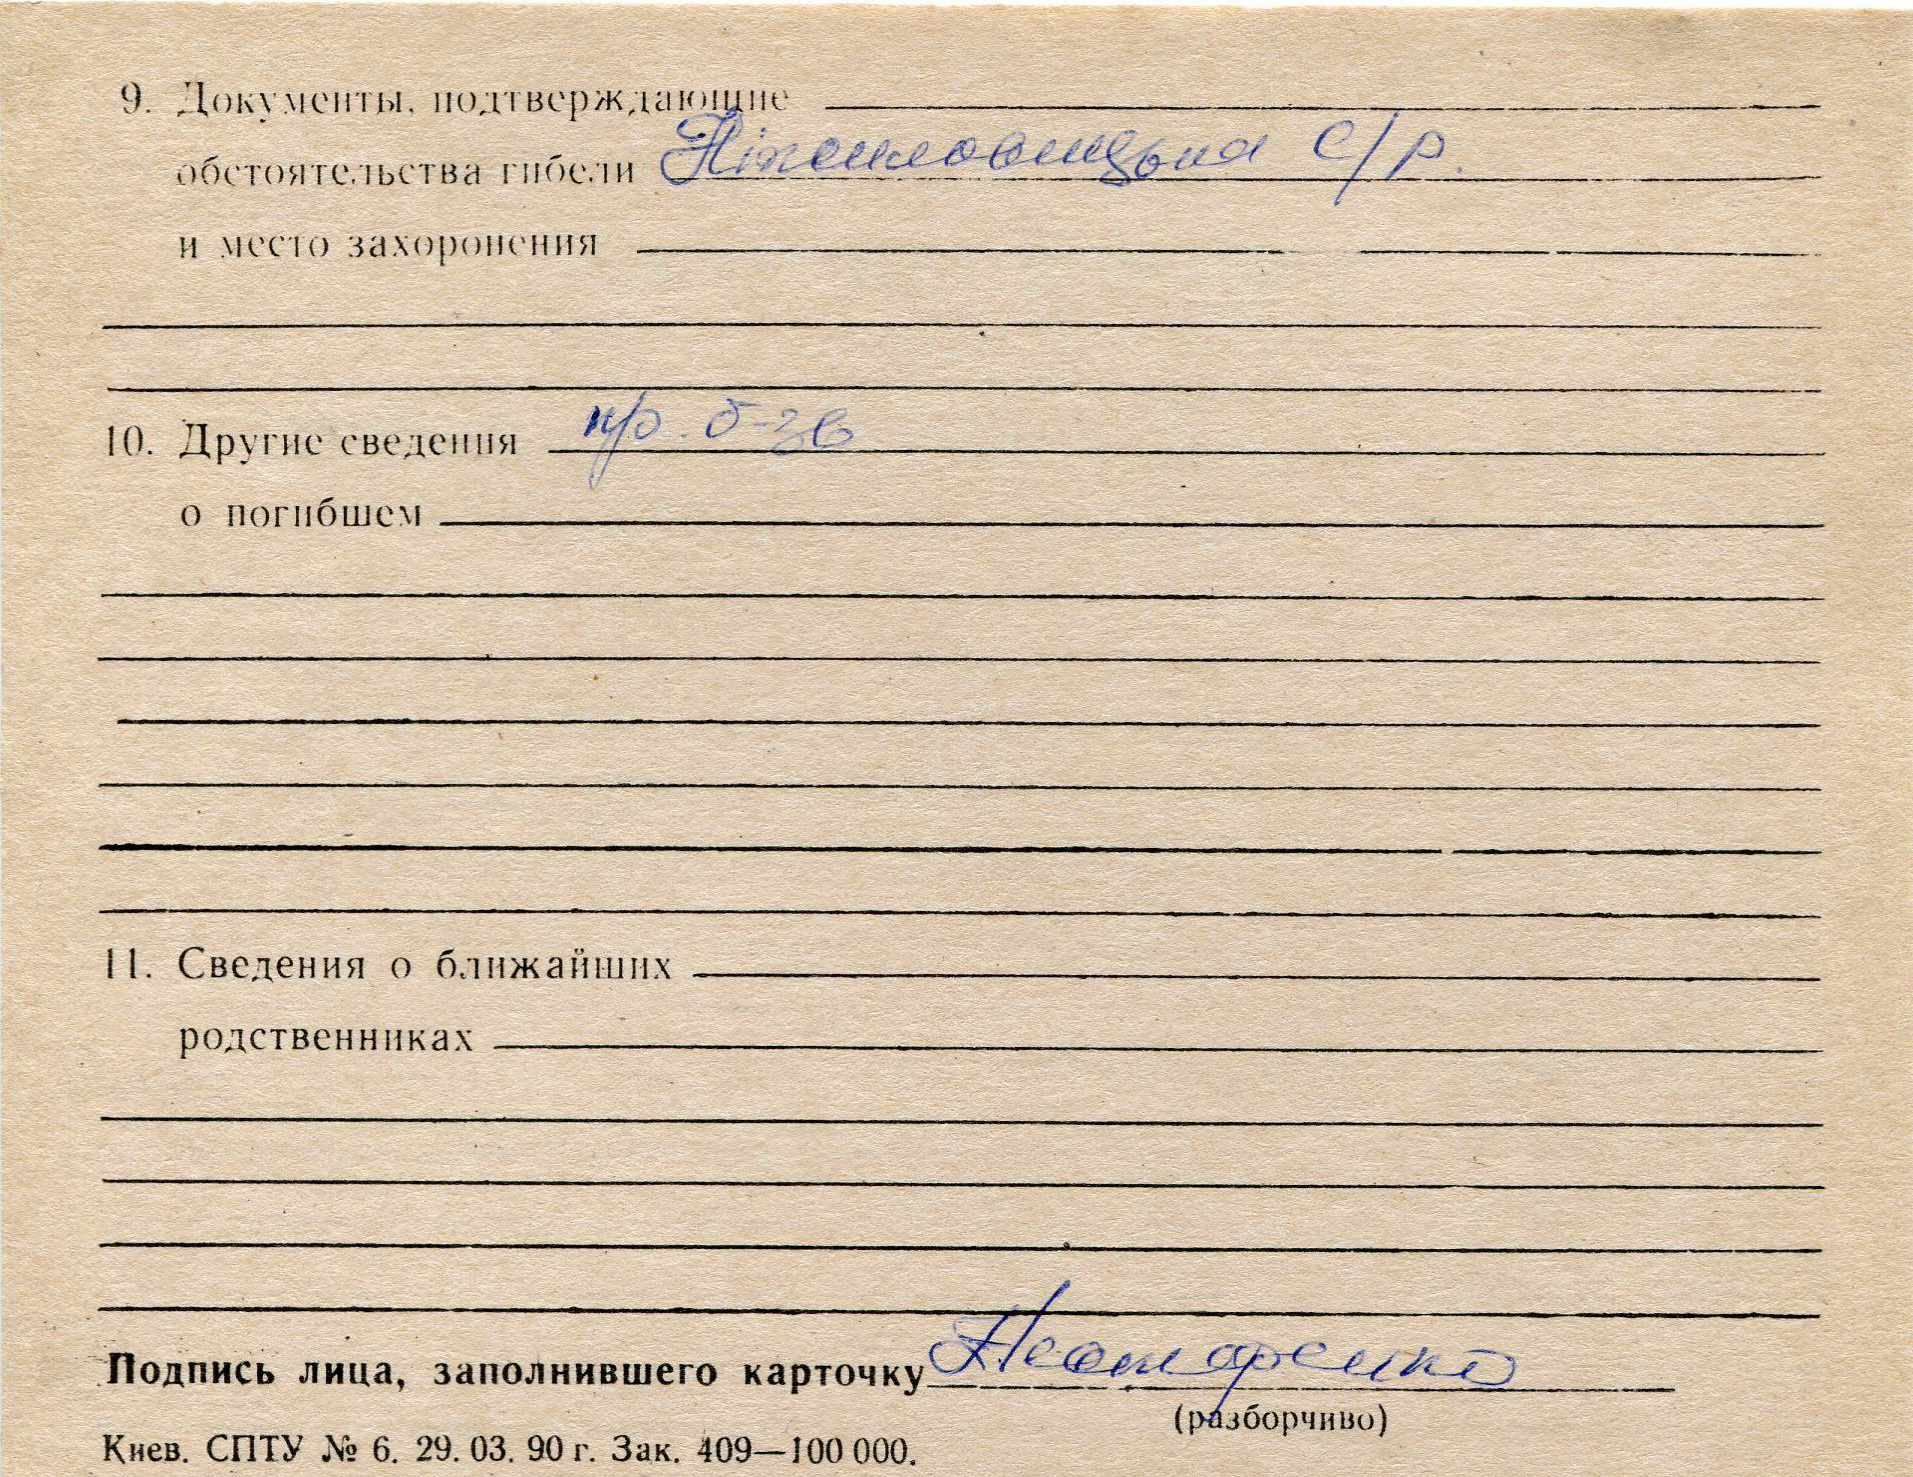 9. Документы, подтверждающие
обстоятельства гибели с/р.
и место захоронения
10. Другие сведения
о погибшем
11. Сведения о ближайших
родственниках
Подпись лица, заполнившего карточку
(разборчиво)
Киев. СПТУ № 6. 29. 03. 90 г. Зак. 409—100 000.